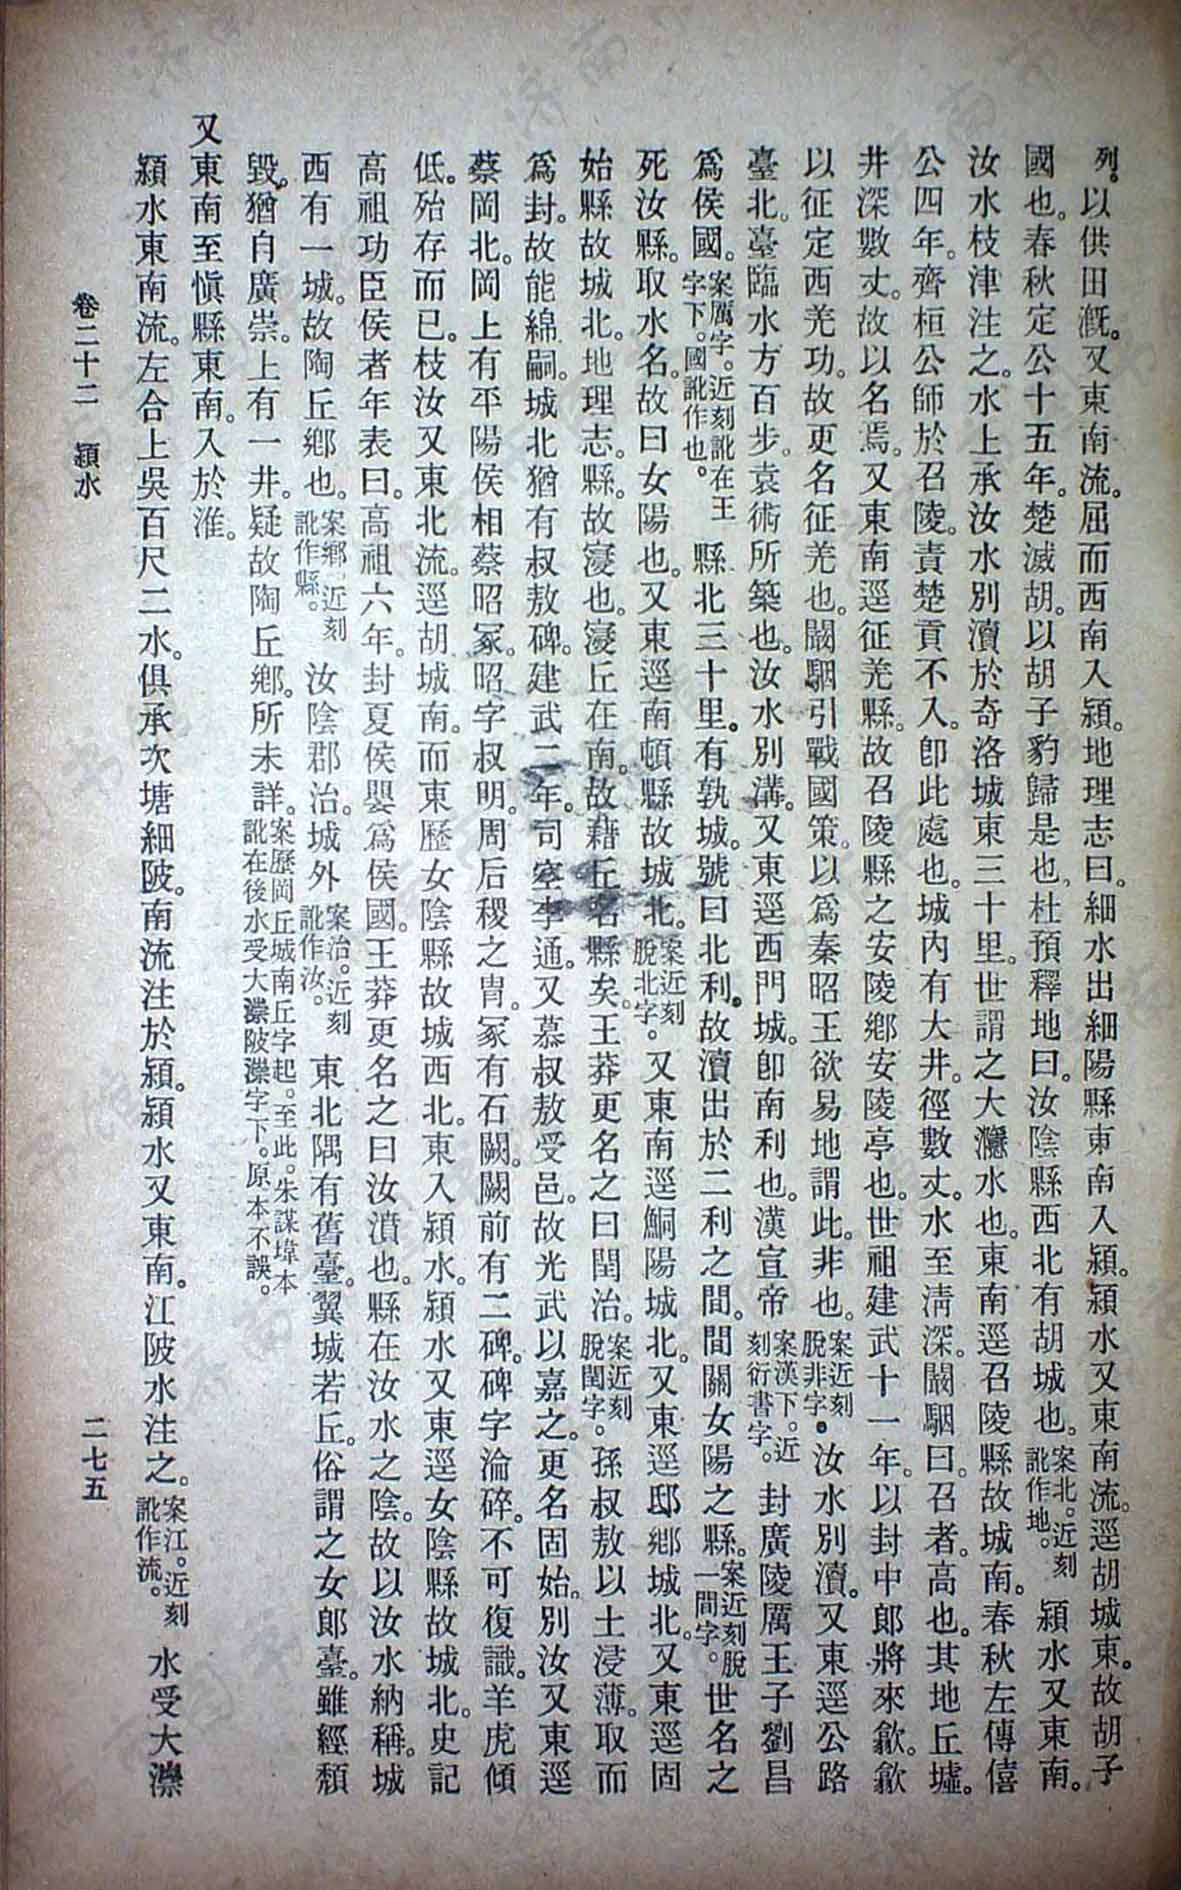 列。以供田漑。又東南流。屈而西南入潁。地理志曰。細水出細陽縣東南入潁。潁水又東南流。逕胡城東。故胡子
國也。春秋定公十五年。楚滅胡。以胡子豹歸是也。杜預釋地曰。汝陰縣西北有胡城也。案北。近刻訛作地。潁水又東南。
汝水枝津注之。水上承汝水別瀆於奇洛城東三十里。世謂之大㶏水也。東南逕召陵縣故城南。春秋左傳僖
公四年。齊桓公師於召陵。責楚貢不入。卽此處也。城內有大井。徑數丈。水至淸深。闞駰曰。召者。高也。其地丘墟。
井深數丈。故以名焉。又東南逕征羌縣。故召陵縣之安陵鄕安陵亭也。世祖建武十一年。以封中郞將來歙。歙
以征定西羌功。故更名征羌也。闞駰引戰國策。以爲秦昭王欲易地謂此。非也。案近刻脫非字。汝水別瀆。又東逕公路
臺北。臺臨水方百步。袁術所築也。汝水別溝。又東逕西門城。卽南利也。漢宣帝案漢下。近刻衍書字。封廣陵厲王子劉昌
爲侯國。案厲字。近刻訛在王字下。國訛作也。縣北三十里。有孰城。號曰北利。故瀆出於二利之間。間關女陽之縣。案近刻脫一間字。世名之
死汝縣。取水名。故曰女陽也。又東逕南頓縣故城北。案近刻脫北字。又東南逕鮦陽城北。又東逕邸鄕城北。又東逕固
始縣故城北。地理志。縣。故寢也。寢丘在南。故藉丘名縣矣。王莽更名之曰閏治。案近刻脫閏字。孫叔敖以土浸薄。取而
爲封。故能綿嗣。城北猶有叔敖碑。建武二年。司空李通。又慕叔敖受邑。故光武以嘉之。更名固始。別汝又東逕
蔡岡北。岡上有平陽侯相蔡昭冢。昭字叔明。周后稷之冑。冢有石闕。闕前有二碑。碑字淪碎。不可復識。羊虎傾
低。殆存而已。枝汝又東北流。逕胡城南。而東歷女陰縣故城西北。東入潁水。潁水又東逕女陰縣故城北。史記
高祖功臣侯者年表曰。高祖六年。封夏侯嬰爲侯國。王莽更名之曰汝濆也。縣在汝水之陰。故以汝水納稱。城
西有一城。故陶丘鄕也。案鄕。近刻訛作縣。汝陰郡治。城外案治。近刻訛作汝。東北隅有舊臺。翼城若丘。俗謂之女郞臺。雖經頹
毀。猶自廣崇。上有一井。疑故陶丘鄕。所未詳。案歷岡丘城南丘字起。至此。朱謀㙔本訛在後水受大漴陂漴字下。原本不誤。
又東南至愼縣東南。入於淮。
潁水東南流。左合上吳百尺二水。俱承次塘細陂。南流注於潁。潁水又東南。江陂水注之。案江。近刻訛作流。水受大漴
卷二十二 潁水
二七五